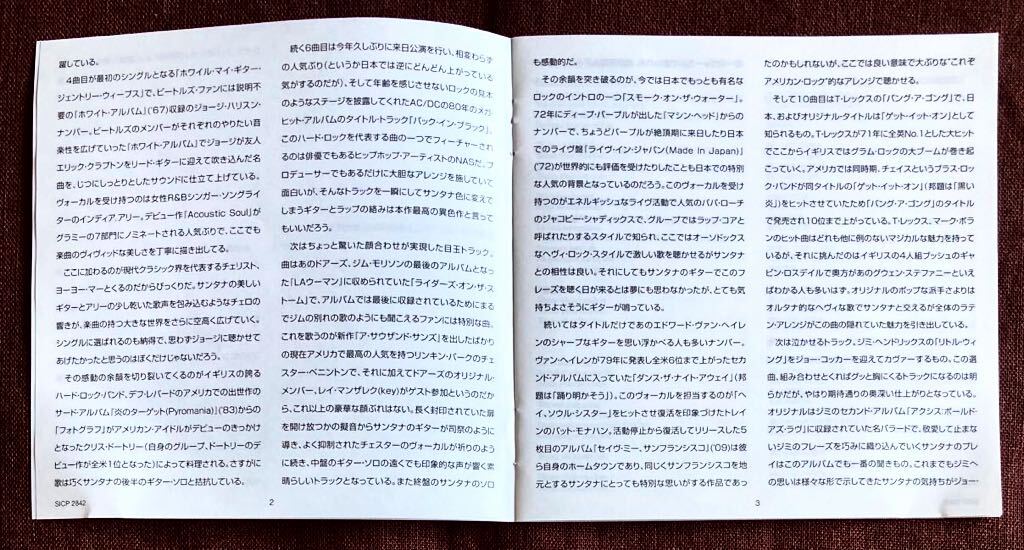 躍している。
4曲目が最初のシングルとなる「ホワイル・マイ・ギター・
ジェントリー・ウィープス」で、ビートルズ・ファンには説明不
要の「ホワイト・アルバム」('67)収録のジョージ・ハリスン・
ナンバー。ビートルズのメンバーがそれぞれのやりたい音
楽性を広げていった「ホワイト・アルバム」でジョージが友人
エリック・クラプトンをリード・ギターに迎えて吹き込んだ名
曲を、じつにしっとりとしたサウンドに仕立て上げている。
ヴォーカルを受け持つのは女性R&Bシンガー・ソングライ
ターのインディア.アリー。デビュー作「Acoustic Soul」が
グラミーの7部門にノミネートされる人気ぶりで、ここでも
楽曲のヴィヴィッドな美しさを丁寧に描き出してる。
ここに加わるのが現代クラシック界を代表するチェリスト、
ヨーヨー・マーとくるのだからびっくりだ。サンタナの美しい
ギターとアリーの少し乾いた歌声を包み込むようなチェロの
響きが、楽曲の持つ大きな世界をさらに空高く広げていく。
シングルに選ばれるのも納得で、思わずジョージに聴かせて
あげたかったと思うのはぼくだけじゃないだろう。
その感動の余韻を切り裂いてくるのがイギリスの誇る
ハード・ロック・バンド、デフ・レパードのアメリカでの出世作の
サード・アルバム「炎のターゲット(Pyromania)」('83)からの
「フォトグラフ」がアメリカン・アイドルがデビューのきっかけ
となったクリス・ドートリー(自身のグループ、ドートリーのデ
ビュー作が全米1位となった)によって料理される。さすがに
歌は巧くサンタナの後半のギター・ソロと拮抗している。
SICP 2842
2
続く6曲目は今年久しぶりに来日公演を行い、相変わらず
の人気ぶり(というか日本では逆にどんどん上がっている
気がするのだが)、そして年齢を感じさせないロックの見本
のようなステージを披露してくれたAC/DCの80年のメガ・
ヒット・アルバムのタイトル・トラック「バック・イン・ブラック」。
このハード・ロックを代表する曲の一つでフィーチャーされ
るのは俳優でもあるヒップホップ・アーティストのNASだ。プ
ロデューサーでもあるだけに大胆なアレンジを施していて
面白いが、そんなトラックを一瞬にしてサンタナ色に変えて
しまうギターとラップの絡みは本作最高の異色作と言って
もいいだろう。
次はちょっと驚いた顔合わせが実現した目玉トラック。
曲はあのドアーズ、ジム・モリソンの最後のアルバムとなっ
た「LAウーマン」に収められていた「ライダーズ・オン・ザ・ス
トーム」で、アルバムでは最後に収録されているためにまる
でジムの別れの歌のようにも聞こえるファンには特別な曲。
これを歌うのが新作「ア・サウザンド・サンズ」を出したばかり
の現在アメリカで最高の人気を持つリンキン・パークのチェ
スター・ベニントンで、それに加えてドアーズのオリジナル・
メンバー、レイ・マンザレク(key)がゲスト参加というのだか
ら、これ以上の豪華な顔ぶれはない。長く封印されていた扉
を開け放つかの擬音からサンタナのギターが司祭のように
導き、よく抑制されたチェスターのヴォーカルが祈りのよう
に続き、中盤のギター・ソロの遠くでも印象的な声が響く素
晴らしいトラックとなっている。また終盤のサンタナのソロ
も感動的だ。
その余韻を突き破るのが、今では日本でもっとも有名な
ロックのイントロの一つ「スモーク・オン・ザ・ウォーター」。
72年にディープ・パープルが出した「マシン・ヘッド」からの
ナンバーで、ちょうどパープルが絶頂期に来日したり日本
でのライヴ盤「ライヴ・イン・ジャパン(Made In Japan)」
('72)が世界的にも評価を受けたりしたことも日本での特別
な人気の背景となっているのだろう。このヴォーカルを受け
持つのがエネルギッシュなライヴ活動で人気のパパ・ローチ
のジャコビー・シャディックスで、グループではラップ・コアと
呼ばれたりするスタイルで知られ、ここではオーソドックス
なヘヴィ・ロック・スタイルで激しい歌を聴かせるがサンタナ
との相性は良い。それにしてもサンタナのギターでこのフ
レーズを聴く日が来るとは夢にも思わなかったが、とても気
持ちよさそうにギターが鳴っている。
続いてはタイトルだけであのエドワード・ヴァン・ヘイレ
ンのシャープなギターを思い浮かべる人も多いナンバー。
ヴァン・ヘイレンが79年に発表し全米6位まで上がったセカ
ンド・アルバムに入っていた「ダンス・ザ・ナイト・アウェイ」(邦
題は「踊り明かそう」)。このヴォーカルを担当するのが「ヘ
イ、ソウル・シスター」をヒットさせ復活を印象づけたトレイ
ンのパット・モナハン。活動停止から復活してリリースした5
枚目のアルバム「セイヴ・ミー、サンフランシスコ」('09)は彼
ら自身のホームタウンであり、同じくサンフランシスコを地
元とするサンタナにとっても特別な思いがする作品であっ
3
たのかもしれないが、ここでは良い意味で大ぶりな“これぞ
アメリカン・ロック”的なアレンジで聴かせる。
そして10曲目はT・レックスの「バング・ア・ゴング」で、日
本、およびオリジナル・タイトルは「ゲット・イット・オン」として
知られるもの。T・レックスが71年に全英No.1とした大ヒット
でここからイギリスではグラム・ロックの大ブームが巻き起
こっていく。アメリカでは同時期、チェイスというブラス・ロッ
ク・バンドが同タイトルの「ゲット・イット・オン」(邦題は「黒い
炎」)をヒットさせていたため「バング・ア・ゴング」のタイトル
で発売され10位まで上がっている。T・レックス、マーク・ボラ
ンのヒット曲はどれも他に例のないマジカルな魅力を持って
いるが、それに挑んだのはイギリスの4人組ブッシュのギャ
ビン・ロスデイルで奥方があのグウェン・ステファニーといえ
ばわかる人も多いはず。オリジナルのポップな派手さよりは
オルタナ的なヘヴィな歌でサンタナと交えるが全体のラテ
ン・アレンジがこの曲の隠れていた魅力を引き出している。
次は泣かせるトラック。ジミ・ヘンドリックスの「リトル・ウィ
ング」をジョー・コッカーを迎えてカヴァーするもの。この選
曲、組み合わせとくればグッと胸にくるトラックになるのは明
らかだが、やはり期待通りの奥深い仕上がりとなっている。
オリジナルはジミのセカンド・アルバム「アクシス:ボールド・
アズ・ラヴ」に収録されていた名バラードで、敬愛して止まな
いジミのフレーズを巧みに織り込んでいくサンタナのプレ
イはこのアルバムでも一番の聞きもの。これまでもジミへ
の思いは様々な形で示してきたサンタナの気持ちがジョー・